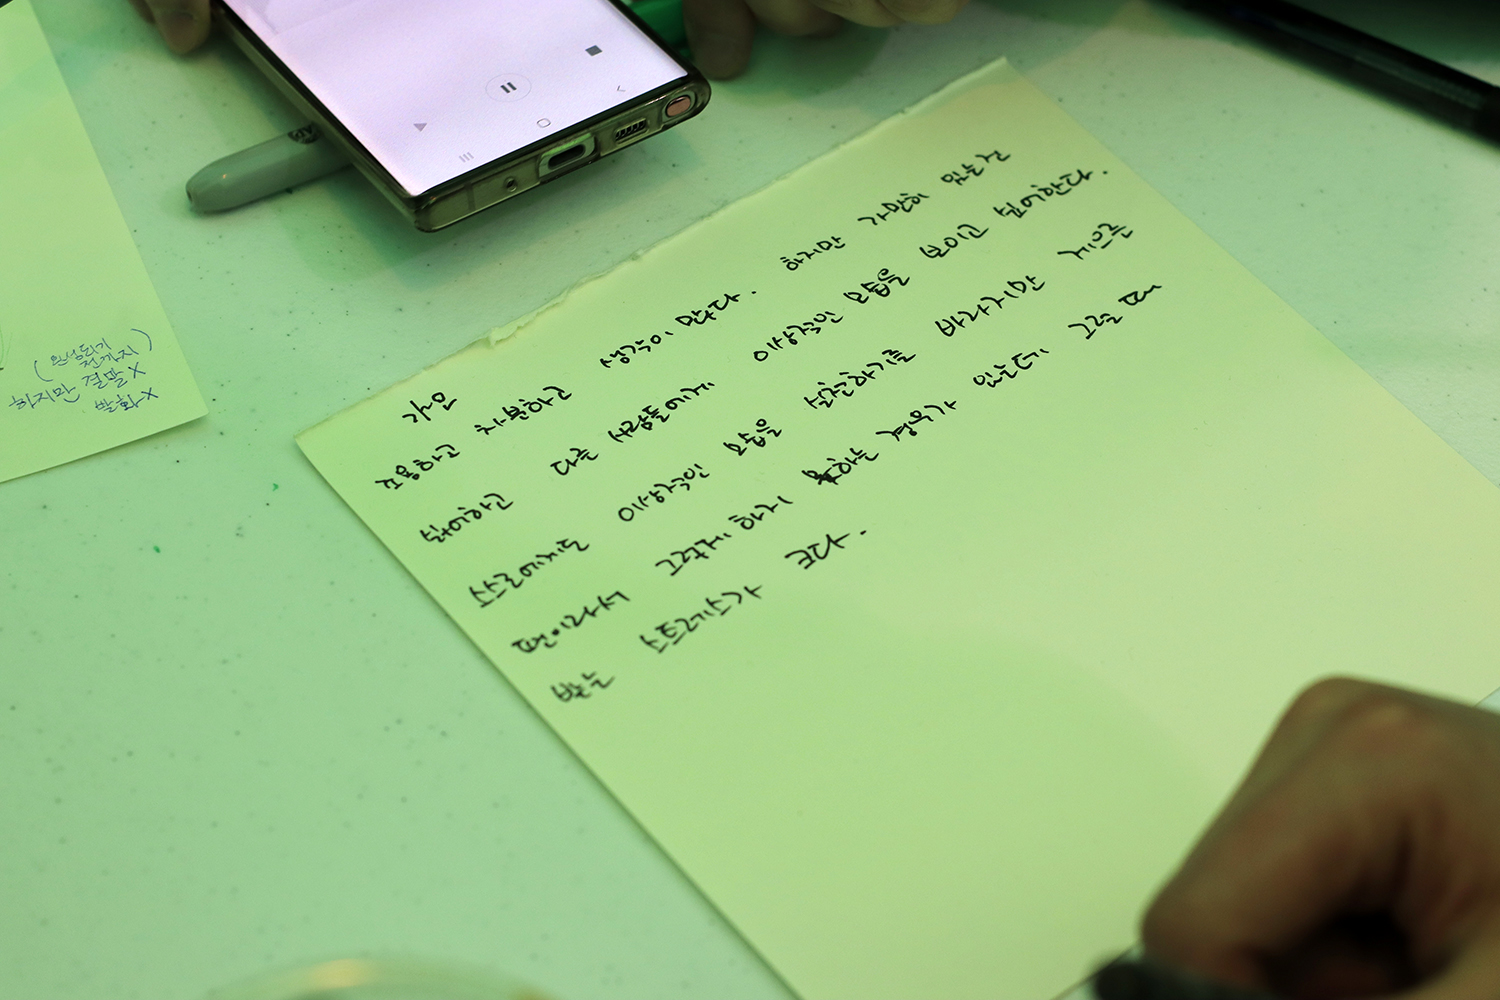 (완성되기
전까지)
하지만 결말X
발화X
가온
조용하고 차분하고 생각이 많다. 하지만 가만히 있는걸
싫어하고 다른 사람들에게 이상적인 모습을 보이고 싶어한다.
스스로에게도 이상적인 모습을 실천하기를 바라지만 게으른
편이라서 그렇게 하지 못하는 경우가 있는데 그럴 때
받는 스트레스가 크다.